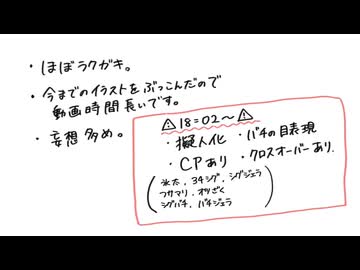 ・ほぼラクガキ。
・今までのイラストをぶっこんだので
動画時間長いです。
・妄想多め。
⚠18=02〜⚠
・擬人化 ・バチの目表現
・CPあり ・クロスオーバーあり.
(氷太, 34シグ, シグジェラ
フサマリ, オツざく
シグバチ, バチジェラ)